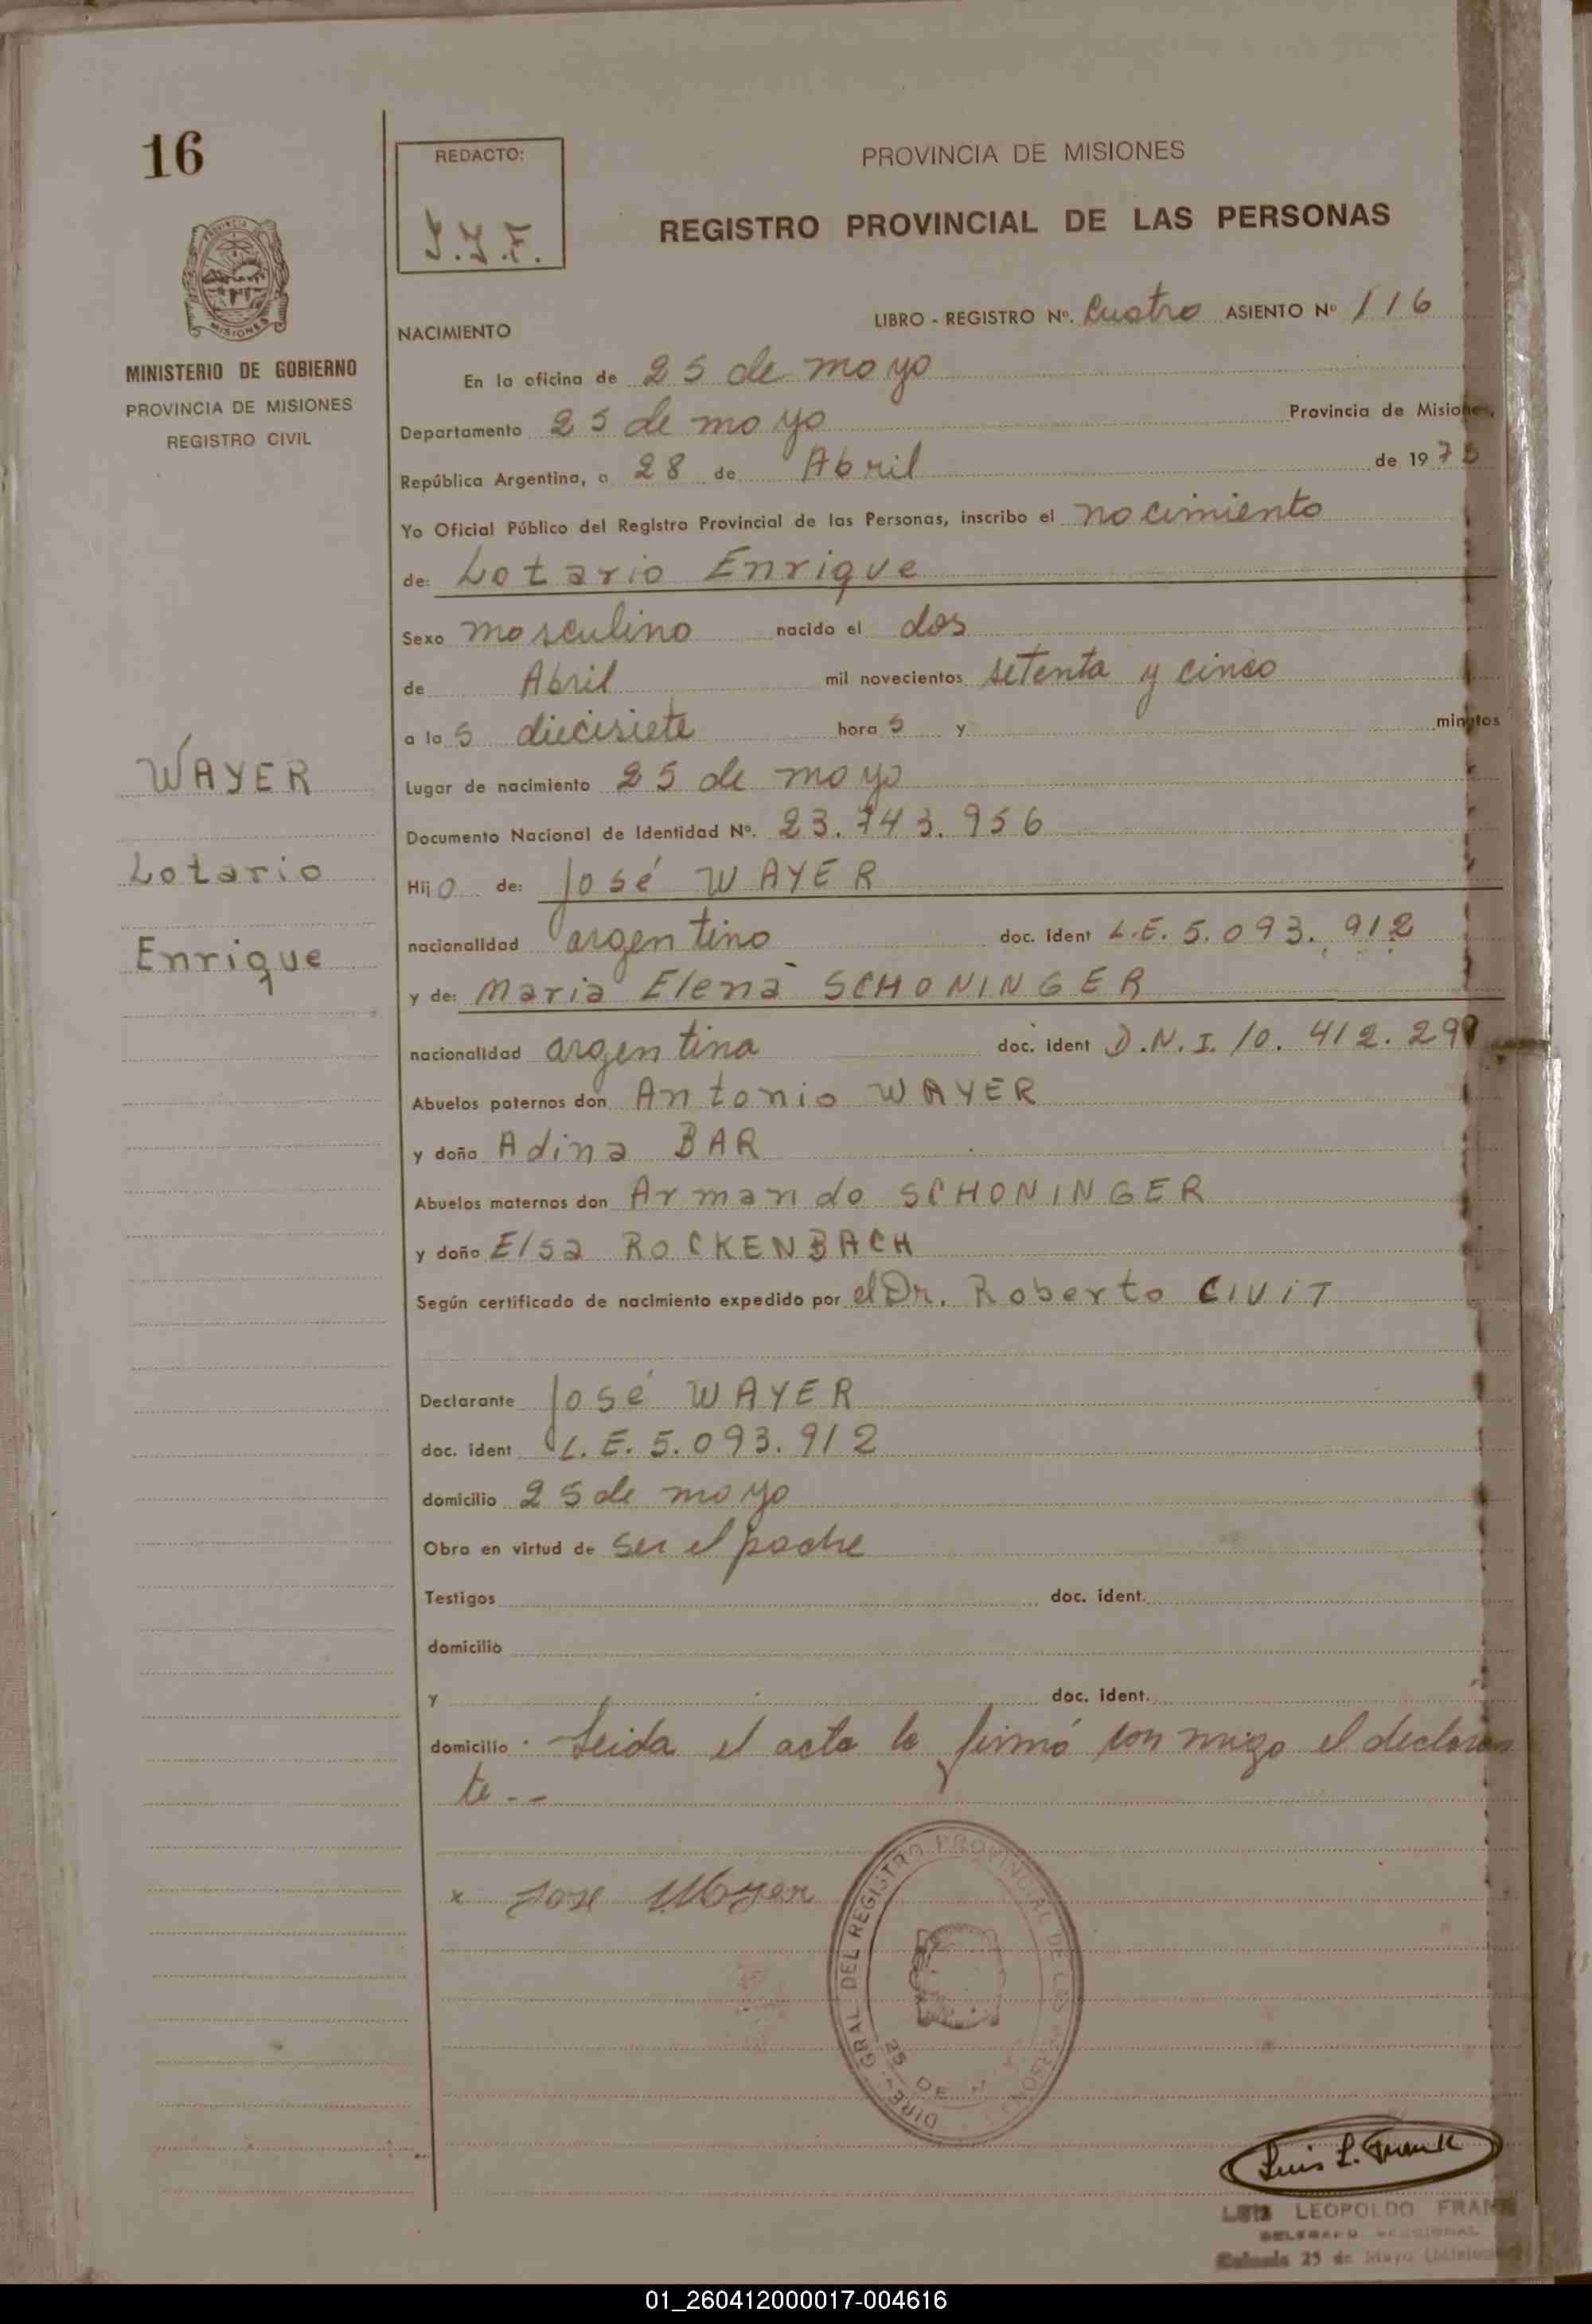 16
REDACTO:
J.J.F.
PROVINCIA DE MISIONES
REGISTRO PROVINCIAL DE LAS PERSONAS
MISIONES
MINISTERIO DE GOBIERNO
PROVINCIA DE MISIONES
REGISTRO CIVIL
LIBRO - REGISTRO Nº. Cuatro ASIENTO Nº 116
NACIMIENTO
En la oficina de 25 de mayo
Departamento 25 de mayo Provincia de Misiones,
República Argentina, a 28 de Abril de 1975
Yo Oficial Público del Registro Provincial de las Personas, inscribo el nacimiento
de: Lotario Enrique
Sexo masculino nacido el dos
de Abril mil novecientos setenta y cinco
a las diecisiete horas y minutos
Lugar de nacimiento 25 de mayo
Documento Nacional de Identidad Nº. 23.743.956
Hijo de: José WAYER
nacionalidad argentino doc. ident L.E. 5.093.912
y de: Maria Elena SCHONINGER
nacionalidad argentina doc. ident D.N.I. 10.412.29
Abuelos paternos don Antonio WAYER
y doña Adina BAR
Abuelos maternos don Armando SCHONINGER
y doña Elsa ROCKENBACH
Según certificado de nacimiento expedido por el Dr. Roberto CIVIT
Declarante José WAYER
doc. ident L.E. 5.093.912
domicilio 25 de mayo
Obra en virtud de ser el padre
Testigos doc. ident.
domicilio
y doc. ident.
domicilio Leida el acta la firmó con migo el declaran
te.--
WAYER
Lotario
Enrique
x Jose Wayer
DIREC. GRAL. DEL REGISTRO PROVINCIAL DE LAS PERSONAS
25 DE
Luis L. Frank
LUIS LEOPOLDO FRANK
DELEGADO SECCIONAL
Colonia 25 de Mayo (Misiones)
01_260412000017-004616